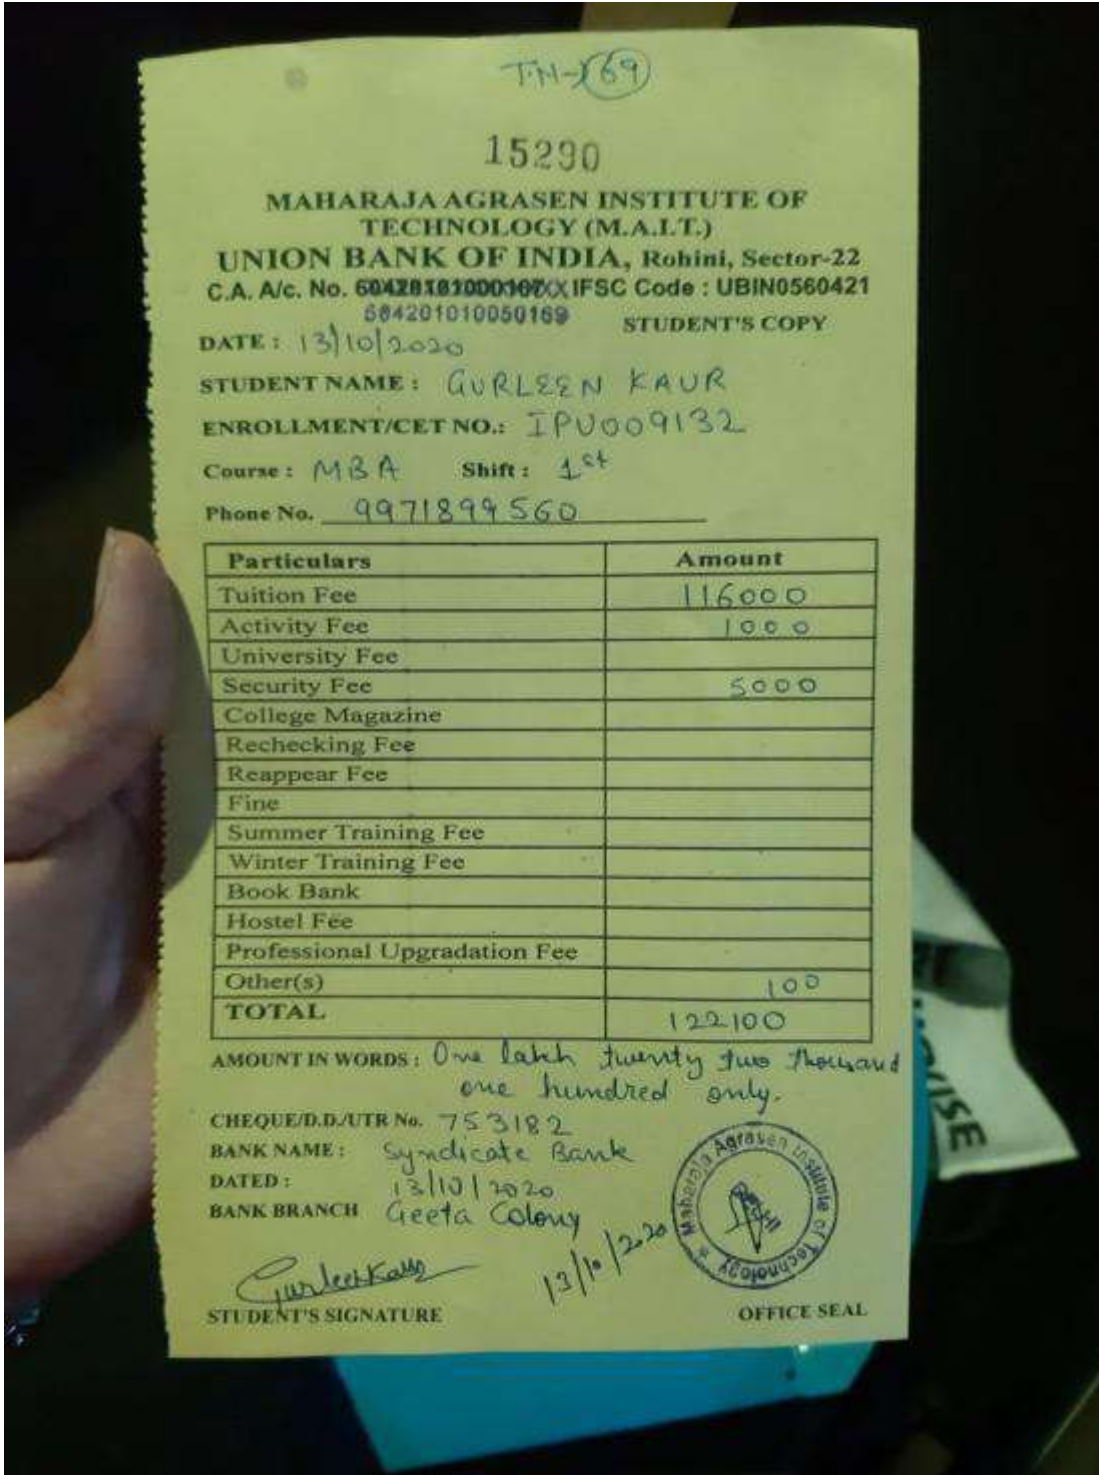 TN-169
15290
MAHARAJA AGRASEN INSTITUTE OF
TECHNOLOGY (M.A.I.T.)
UNION BANK OF INDIA, Rohini, Sector-22
C.A. A/c. No. IFSC Code : UBIN0560421
STUDENT'S COPY
DATE : 13/10/2020
STUDENT NAME : GURLEEN KAUR
ENROLLMENT/CET NO.: IPU009132
Course : MBA Shift : 1st
Phone No. 9971899560
Particulars Amount
Tuition Fee 116000
Activity Fee 1000
University Fee
Security Fee 5000
College Magazine
Rechecking Fee
Reappear Fee
Fine
Summer Training Fee
Winter Training Fee
Book Bank
Hostel Fee
Professional Upgradation Fee
Other(s) 100
TOTAL 122100
AMOUNT IN WORDS : One lakh twenty two thousand
one hundred only.
CHEQUE/D.D./UTR No. 753182
BANK NAME : Syndicate Bank
DATED : 13/10/2020
BANK BRANCH Geeta Colony
Maharaja Agrasen Institute of Technology
13/10/2020
Gurleen Kaur
STUDENT'S SIGNATURE OFFICE SEAL